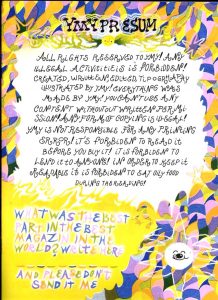 YMY PRESUM
ALL RIGHTS RESERVED TO YMY! ANY
ILLEGAL ACTIVITIE IS FORBIDEN!
CREATED, WRITTEN, EDITED, TYPOGRAPHY
ILUSTRATED BY YMY! EVERYTHING WAS
MADE BY YMY! YOU CAN'T USE ANY
CONTENT WITHOUT WRITTEN PERMI-
SSION! ANY FORM OF COPYING IS ILLEGAL!
YMY IS NOT RESPONSIBLE FOR ANY PRINTING
ERRORS! IT'S FORBIDEN TO READ IT
BEFORE YOU BUY IT! IT IS FORBIDEN TO
LEND IT TO ANYONE! IN ORDER TO KEEP IT
READABLE IT IS FORBIDEN TO EAT OILY FOOD
DURING THE READING!
WHAT WAS THE BEST
PART IN THE BEST
MAGAZIN IN THE
WORLD? WRITE HERE
AND PLEASE DON'T
SEND IT ME